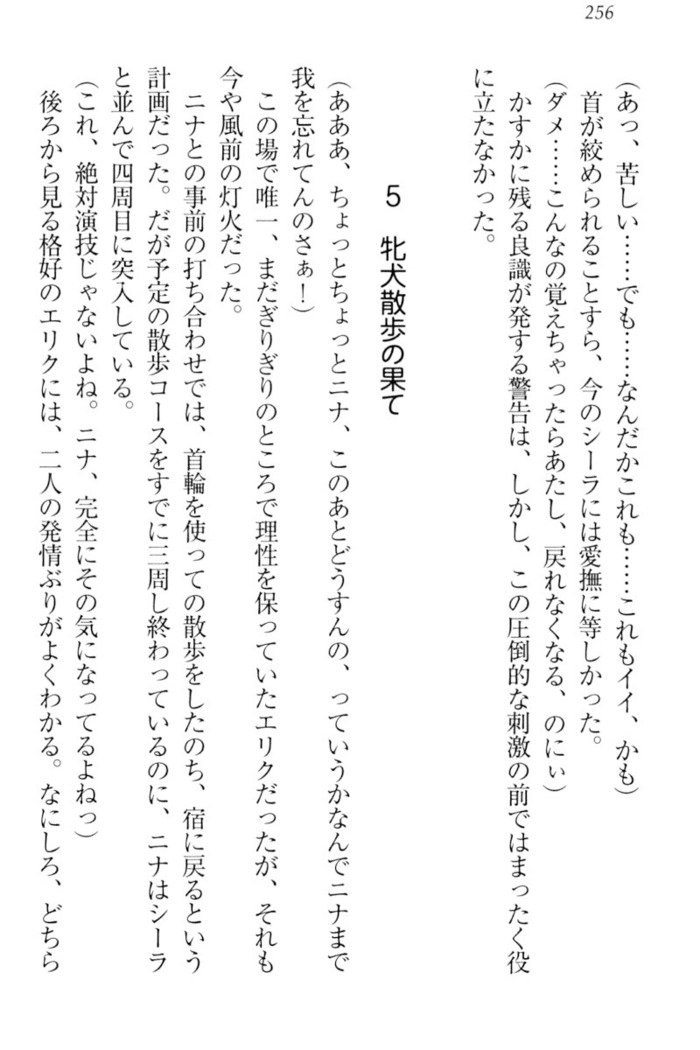 256
（あっ、苦しい……でも……なんだかこれも……これもイイ、かも）
首が絞められることすら、今のシーラには愛撫に等しかった。
（ダメ……こんなの覚えちゃったらあたし、戻れなくなる、のにぃ）
かすかに残る良識が発する警告は、しかし、この圧倒的な刺激の前ではまったく役
に立たなかった。
5　牝犬散歩の果て
（あああ、ちょっとちょっとニナ、このあとどうすんの、っていうかなんでニナまで
我を忘れてんのさぁ！）
この場で唯一、まだぎりぎりのところで理性を保っていたエリクだったが、それも
今や風前の灯火だった。
ニナとの事前の打ち合わせでは、首輪を使っての散歩をしたのち、宿に戻るという
計画だった。だが予定の散歩コースをすでに三周し終わっているのに、ニナはシーラ
と並んで四周目に突入している。
（これ、絶対演技じゃないよね。ニナ、完全にその気になってるよねっ）
後ろから見る格好のエリクには、二人の発情ぶりがよくわかる。なにしろ、どちら